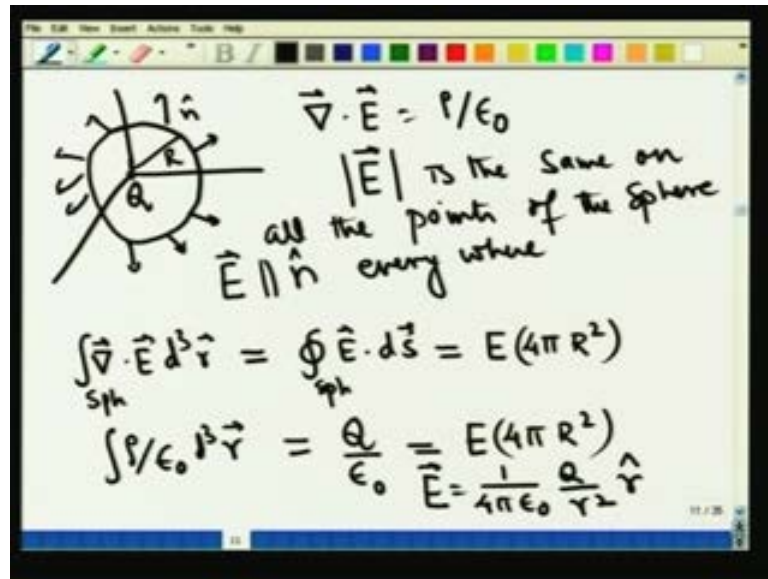 File Edit View Insert Actions Tools Help
B I
n̂
R
Q
∇⃗ · E⃗ = ρ/ϵ₀
|E⃗| is the same on
all the points of the sphere
E⃗ ∥ n̂ every where
∫ ∇⃗ · E⃗ d³r̂ = ∮ Ê · ds⃗ = E(4π R²)
Sph sph
∫ρ/ϵ₀ d³r⃗ = Q/ϵ₀ = E(4π R²)
E⃗ = 1/4πϵ₀ Q/r² r̂